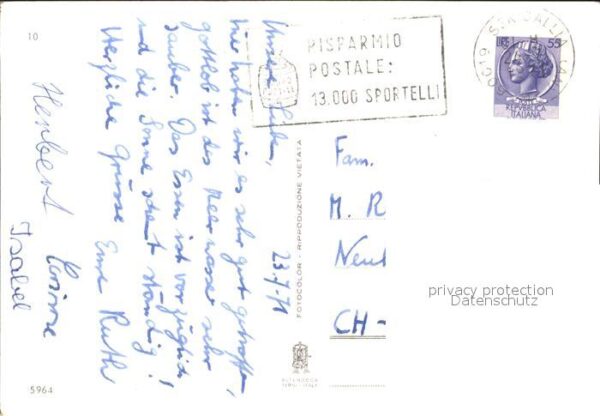 10
RISPARMIO
POSTALE:
13.000 SPORTELLI
60019 SENIGALLIA
LIRE 55
REPUBBLICA
ITALIANA
23.7.71
Unsere Lieben,
hier haben wir es sehr gut getroffen,
gottlob ist das Meerwasser sehr
sauber. Das Essen ist vorzüglich,
und die Sonne scheint ständig!
Herzliche Grüsse Eure Ruth
Herbert
Corinne
Isabel
FOTOCOLOR - RIPRODUZIONE VIETATA
Fam.
M. R
Neu
CH-
privacy protection
Datenschutz
5964